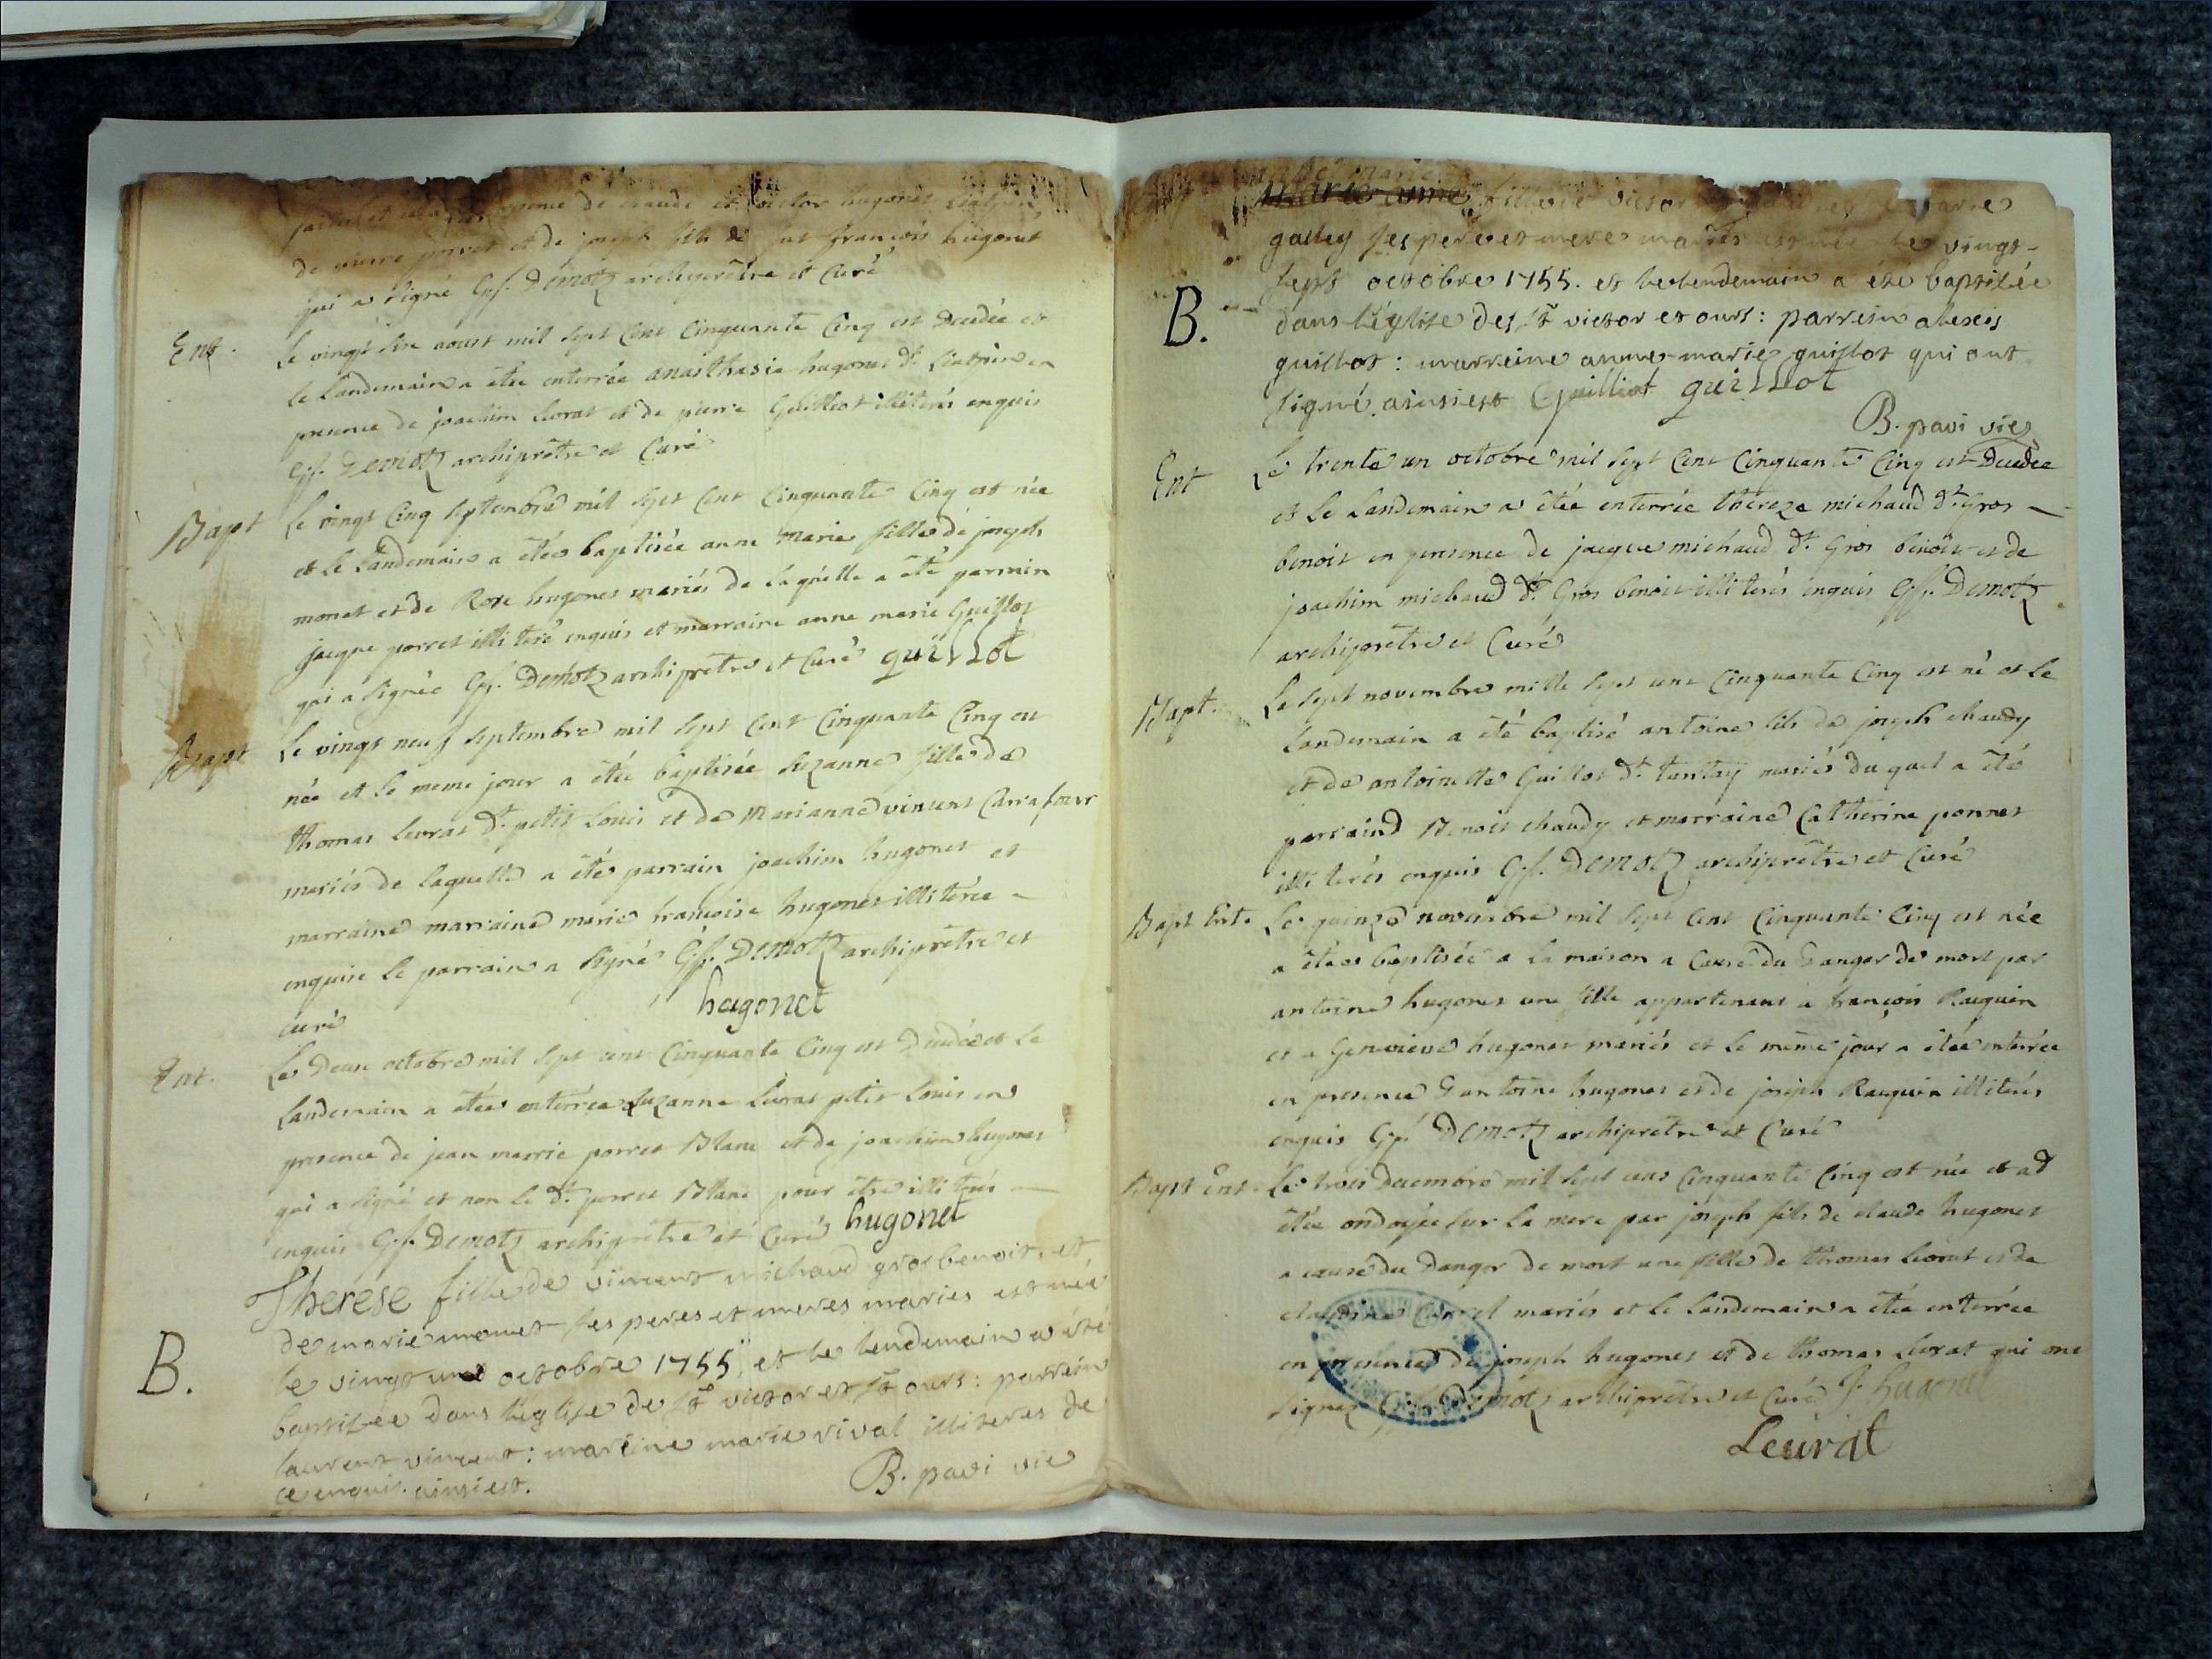 de claude et victor hugonet
de pierre porret et de joseph fils de fut françois hugonet
qui a signé Gf. Demotz archiprêtre et Curé
Ent. Le vingt six aoust mil sept Cent Cinquante Cinq est Decedée et
le Landemain a étée enterrée anasthasie hugonet dt. en
presence de joachim livrat et de pierre Guilliot illiterés enquis
Gf. Demotz archiprêtre et Curé
Bapt Le vingt Cinq septembre mil sept Cent Cinquante Cinq est née
et le Landemain a étée baptisée anne Marie fille de joseph
monet et de Roze hugonet mariés de laquelle a été parrain
jacque porret illiteré enquis et marraine anne marie Guillot
qui a signée Gf. Demotz archiprêtre et Curé guillot
Bapt Le vingt neuf septembre mil sept Cent Cinquante Cinq est
née et le meme jour a étée baptisée suzanne fille de
thomas levrat dt. petit louis et de Marianne vincent Carrafour
mariés de laquelle a été parrain joachim hugonet et
marraine marraine marie françoise hugonet illiterée
enquise le parrain a signé Gf. Demotz archiprêtre et
curé hugonet
Ent. Le Deux octobre mil sept cent Cinquante Cinq est Decedée et Le
Landemain a étée enterrée suzanne levrat petit Louis en
presence de jean marrie porret Blanc et de joachim hugonet
qui a signé et non le dt. porret Blanc pour être illiteré
enquis Gf. Demotz archiprêtre et Curé hugonet
Therese fille de vincent michaud gros benoit et
de marie monet ses peres et meres maries est née
B. le vingt un octobre 1755, et le lendemain a été
baptisée dans l'église de st victor et st ours: parrein
laurent vincent: mareine marie rival illiteres de
ce enquis. ainsi est. B. pavi vic
marie anne fille de victor
galley ses pere et mere mariés est née le vingt-
sept octobre 1755. et le lendemain a éte baptisée
B. dans l'église des st victor et ours: parrein alexis
guillot: marreine anne-marie guillot qui ont
signé. ainsi est Guilliot guillot
B. pavi vic
Ent Le trente un octobre mil sept Cent Cinquante Cinq est Decedée
et Le Landemain a étée enterrée théreze michaud dt. Gros
benoit en presence de jacque michaud dt. Gros benoit et de
joachim michaud dt. Gros benoit illiterés enquis Gf. Demotz
archiprêtre et Curé
Bapt. Le sept novembre mille sept cent Cinquante Cinq est né et Le
Landemain a été baptisé antoine fils de joseph chaudy
et de antoinette Guillot dt. tantaÿ mariés du quel a été
parraind Benoit chaudy et marraine Catherine ponnet
illiterés enquis Gf. Demotz archiprêtre et Curé
Bapt Ent. Le quinze novembre mil sept Cent Cinquante Cinq est née
a étée baptisée a la maison a Cause du Danger de mort par
antoine hugonet une fille appartenant a françois Raquin
et a Genevieve hugonet mariés et le même jour a étée enterrée
en presence D'antoine hugonet et de joseph Raquin illiterés
enquis Gf. Demotz archiprêtre et Curé
Bapt Ent. Le trois Decembre mil sept cent Cinquante Cinq est née et a d
étée ondoyée sur la mere par joseph fils de claude hugonet
a cause du Danger de mort une fille de thomas levrat et de
claudine mariés et le landemain a étée enterrée
en presence de joseph hugonet et de thomas levrat qui ont
signez Gf. Demotz archiprêtre et Curé J. hugonet
Leurat